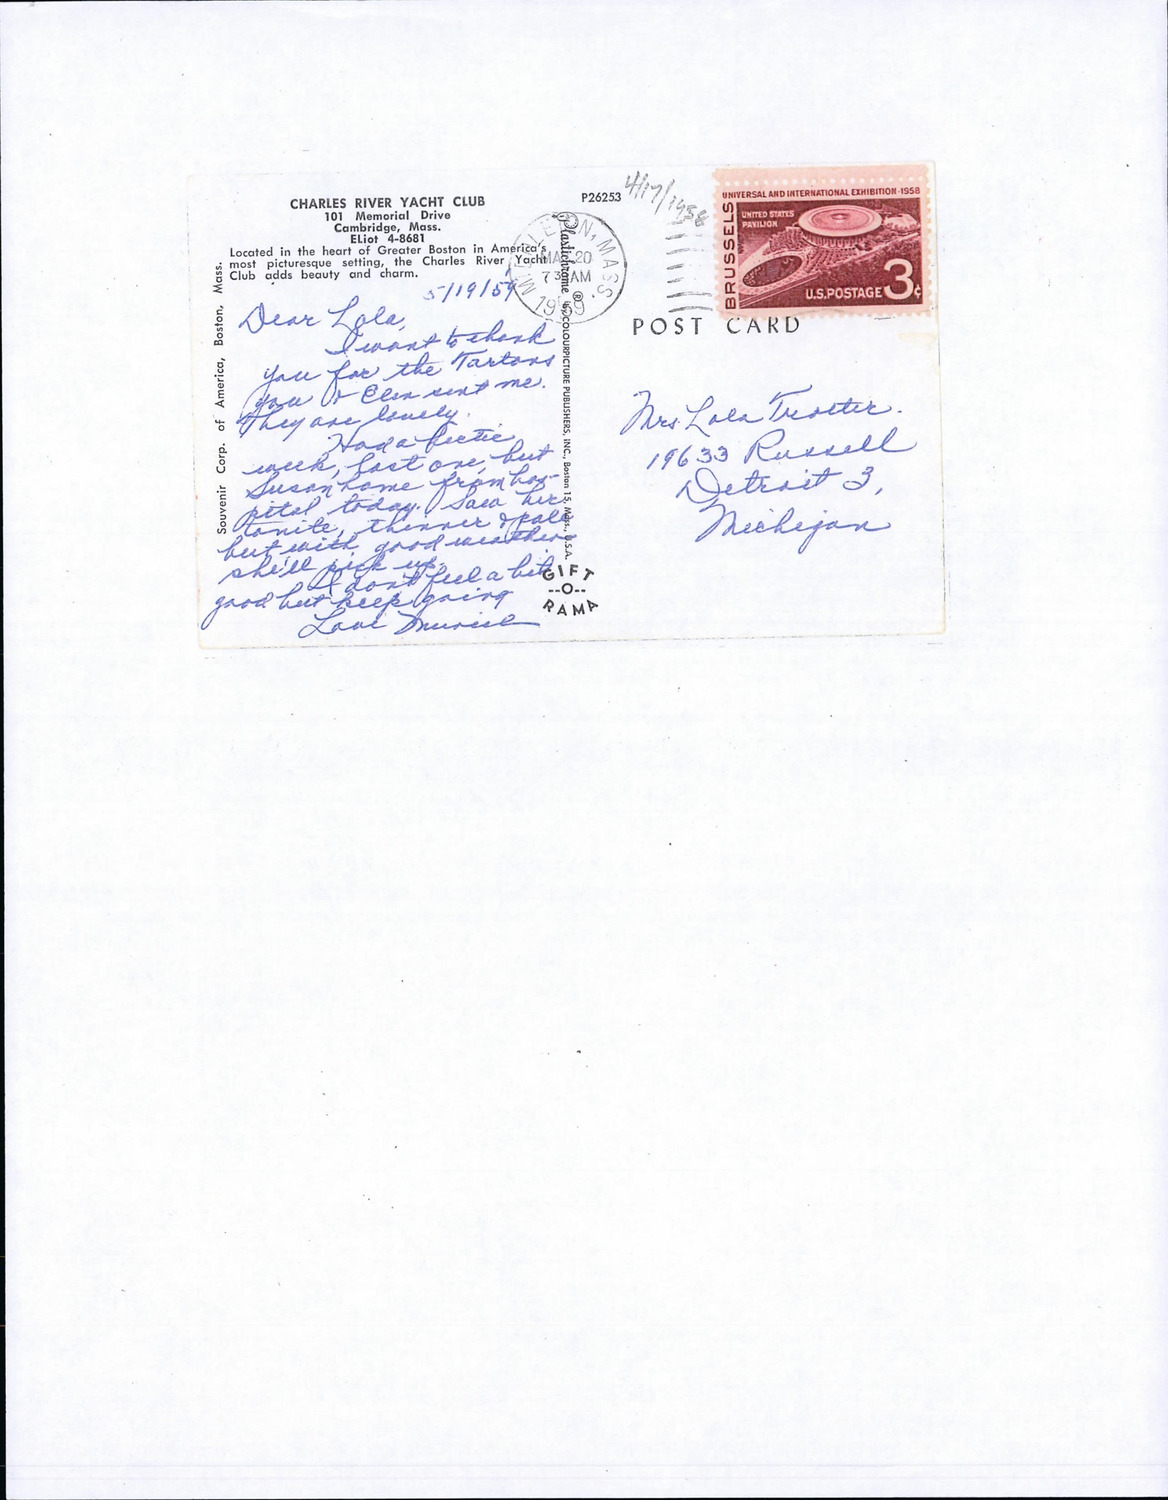 CHARLES RIVER YACHT CLUB
101 Memorial Drive
Cambridge, Mass.
ELiot 4-8681
Located in the heart of Greater Boston in America's
most picturesque setting, the Charles River Yacht
Club adds beauty and charm.
5/19/59
Dear Lola,
I want to thank
you for the Tartans
you & Elen sent me.
They are lovely.
Had a hectic
week, last one, but
Susan home from hos-
pital today. Saw her
tonite, thinner & pale
but with good weather
she'll pick up.
I don't feel a bit
good but keep going
Love Muriel
Souvenir Corp. of America, Boston, Mass.
Plastichrome ® by COLOURPICTURE PUBLISHERS, INC., Boston 15, Mass., U.S.A.
GIFT
--O--
RAMA
P26253
4/17/1958
MIDDLETON, MASS.
MAY 20
7 30 AM
1959
UNIVERSAL AND INTERNATIONAL EXHIBITION·1958
UNITED STATES
PAVILION
BRUSSELS
U.S. POSTAGE 3¢
POST CARD
Mrs. Lola Troeter.
19633 Russell
Detroit 3,
Michigan